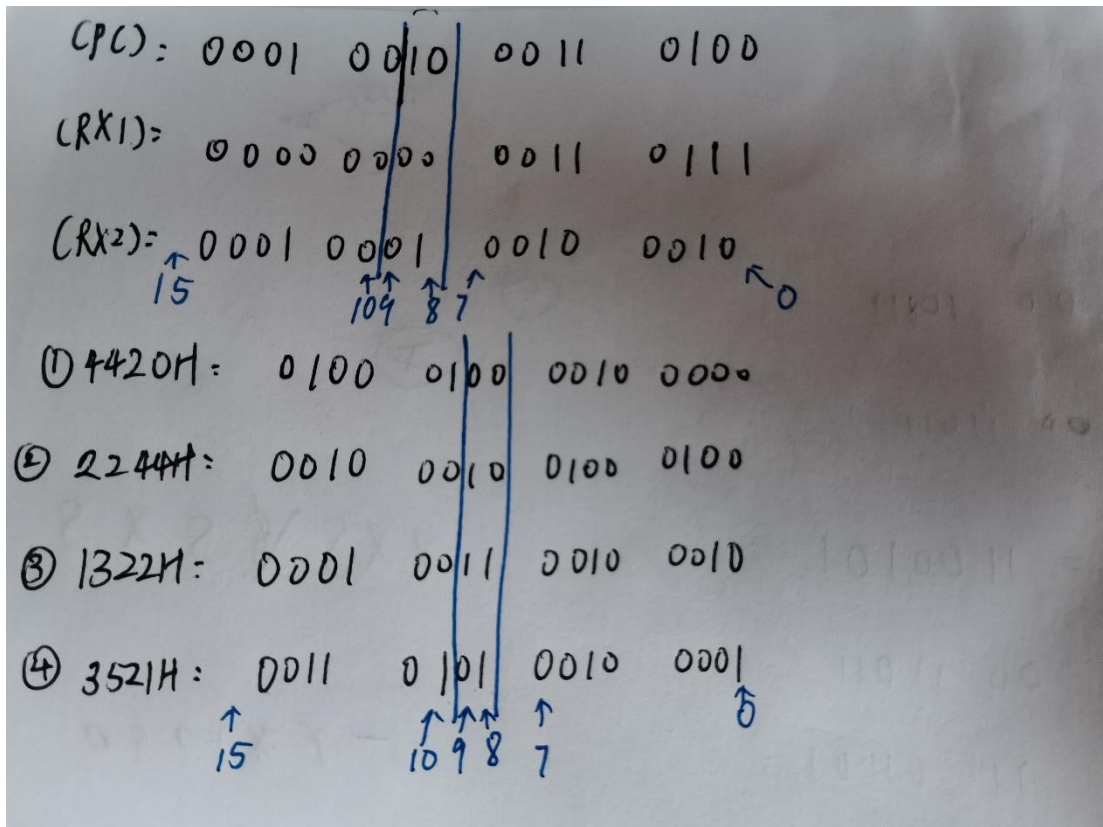 (PC): 0001 0010 0011 0100
(RX1)= 0000 0000 0011 0111
(RX2)= 0001 0001 0010 0010
15 10 9 8 7 0
① 4420H: 0100 0100 0010 0000
② 2244H: 0010 0010 0100 0100
③ 1322H: 0001 0011 0010 0010
④ 3521H: 0011 0101 0010 0001
15 10 9 8 7 0